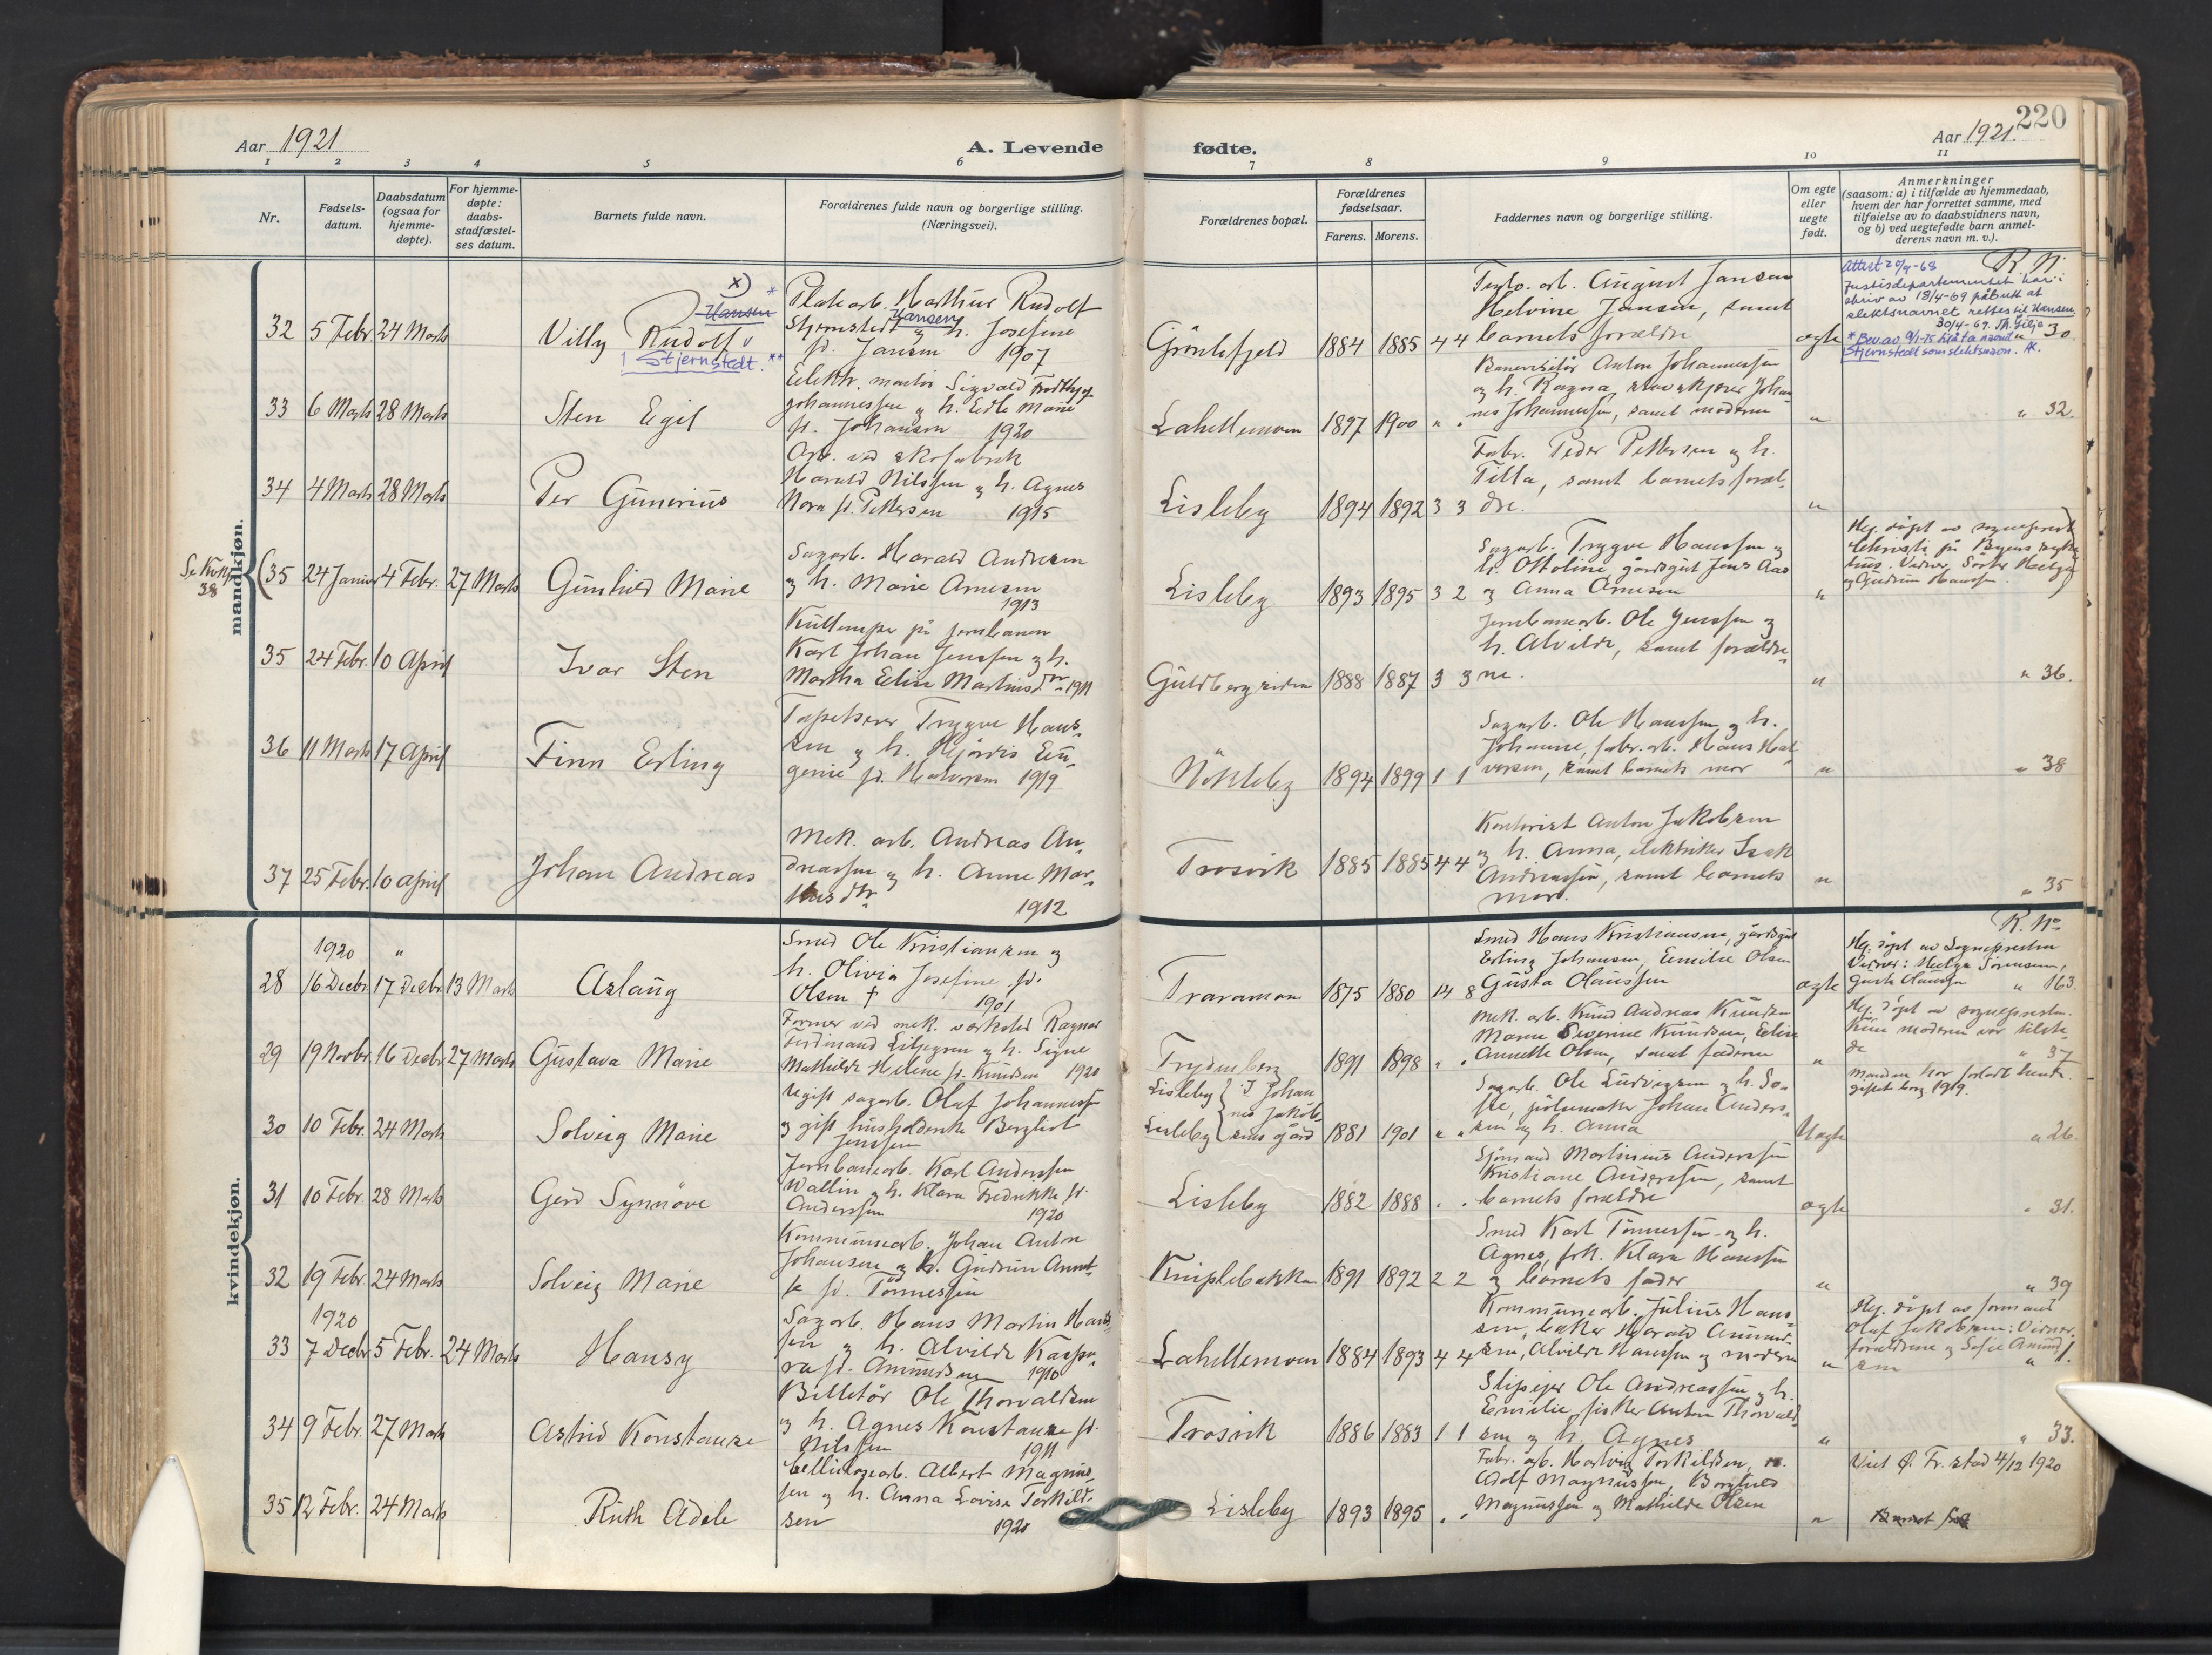 Aar 1921
A. Levende
fødte.
220
Aar 1921.
1 2 3 4 5 6 7 8 9 10 11
Nr.
Fødsels-
datum.
Daabsdatum
(ogsaa for
hjemme-
døpte).
For hjemme-
døpte:
daabs-
stadfæstel-
ses datum.
Barnets fulde navn.
Forældrenes fulde navn og borgerlige stilling.
(Næringsvei).
Forældrenes bopæl.
Forældrenes
fødselsaar.
Farens. Morens.
Faddernes navn og borgerlige stilling.
Om egte
eller
uegte
født.
Anmerkninger
(saasom: a) i tilfælde av hjemmedaab,
hvem der har forrettet samme, med
tilføielse av to daabsvidners navn,
og b) ved uegtefødte barn anmel-
derens navn m. v.).
mandkjøn.
x) *
Hansen
32 5 Febr. 24 Marts
Villy Rudolf
Stjernstedt. **
Platearb. Harthur Rudolf
Stjernstedt Hansen og h. Josefine
f. Jansen 1907
Grönlifjeld 1884 1885 4 4
arb. August Jansen
Helvine Jansen, samt
barnets forældre
ægte
Attest 20/4-68 R. N.
Justisdepartementet har i
skriv av 18/4-69 påbudt at
slektsnavnet rettes til Hansen.
30/4-69. Th. Gilje 30
Stjernstedt som slektsnavn.
33 6 Marts 28 Marts
Sten Egil
Elektr. montör Sigvald
Johannessen og h. Edle Marie
f. Johansen 1920
Lahellemoen 1897 1900 " "
Banevisitör Anton Johannessen
og h. Ragna, Johan
nes Johannessen, samt moderen
"
" 32.
34 4 Marts 28 Marts
Per Gunerius
Arb. ved skofabrik
Harald Nilssen og h. Agnes
Nora f. Pettersen 1915
Lisleby 1894 1892 3 3
Fabr. Peder Pettersen og h.
Tilla, samt barnets foræl-
dre.
"
Se Kvkj
38
(35 24 Januar 4 Febr. 27 Marts
Gunhild Marie
Sagarb. Harald Andresen
og h. Marie Arnesen
1913
Lisleby 1893 1895 3 2
Sagarb. Trygve Hanssen og
h. Ottoline, gårdsgut Jens Aas
og Anna Arnesen
"
Hj. döpt av sogneprest
Christie på Byens syke
hus. Vidner, Söster Helga
og Gudrun Hanssen.
35 24 Febr. 10 April
Ivar Sten
Kullemper på jernbanen
Karl Johan Jenssen og h.
Martha Eline Martinsdtr 1911
Guldbergsiden 1888 1887 3 3
Jernbanearb. Ole Jenssen og
h. Alvilde, samt forældre-
ne.
"
" 36.
36 11 Marts 17 April
Finn Erling
Tapetserer Trygve Hans-
sen og h. Hjördis Eu-
genie f. Halvorsen 1919
Nökleby 1894 1899 1 1
Sagarb. Ole Hanssen og h.
Johanne, fabr. arb. Hans Hal
vorsen, samt barnets mor
"
" 38
37 25 Febr. 10 april
Johan Andreas
Mek. arb. Andreas An-
dreassen og h. Anne Mar-
tinsdtr
1912
Trosvik 1885 1885 4 4
Kontorist Anton Jakobsen
og h. Anna, elektriker Isak
Andreassen, samt barnets
mor.
"
" 35
kvindekjøn.
1920 "
28 16 Decbr. 17 Decbr. 13 Marts
Aslaug
Smed Ole Kristiansen og
h. Olivia Josefine f.
Olsen † 1901
Traramoen 1875 1880 14 8
Smed Hans Kristiansen, gårdsgut
Erling Johansen, Emilie Olsen
Gusta Claussen
ægte
R. No
Hj. döpt av Sognepresten
Vidner: Helga Sörensen,
Gusta Claussen " 163.
29 19 Novbr. 16 Decbr. 27 Marts
Gustava Marie
Former ved mek. verksted Ragnar
Ferdinand Liljegren og h. Signe
Mathilde Helene f. Knudsen 1920
Trydenberg 1891 1898 " "
Mek. arb. Knud Andreas Knudsen
Maren Severine Knudsen, Edvin
Annette Olsen, samt faderen
"
Hj. döpt av sognepresten.
Kun moderen var tilste-
de " 37
30 10 Febr. 24 Marts
Solveig Marie
Ugift sagarb. Olaf Johannessen
og gift husholderske Bergliot
Jenssen
Lisleby { J Johan
nes Jakob-
Lisleby { sens gård
1881 1901 " "
Sagarb. Ole Ludvigsen og h. So-
fie, Johan Anders-
sen og h. Anna
Uægte
Manden har forladt hende.
gift borg. 1919.
" 26.
31 10 Febr. 28 Marts
Gerd Synnöve
Jernbanearb. Karl Anderssen
Wallin og h. Klara Fredrikke f.
Anderssen 1920
Lisleby 1882 1888 " "
Sjömand Martinius Anderssen
Kristiane Anderssen, samt
barnets forældre
ægte
" 31.
32 19 Febr. 24 Marts
Solveig Marie
Kommunearb. Johan Anton
Johansen og h. Gudrun Annet-
te f. Tönnessen
Kniplebakken 1891 1892 2 2
Smed Karl Tönnessen og h.
Agnes, frk. Klara Hanssen
og barnets fader
"
" 39
1920
33 7 Decbr 5 Febr. 24 Marts
Hansy
Sagarb. Hans Martin Hans
sen og h. Alvilde Kaspa-
ra f. Amundsen 1910
Lahellemoen 1884 1893 4 4
Kommunearb. Julius Hans-
sen, baker Harald Amund-
sen, Alvilde Hanssen og moderen
"
Hj. döpt av formand
Olaf Jakobsen: Vidner.
forældrene og Sofie Amund
sen " 1.
34 9 Febr. 27 Marts
Astrid Konstanse
Billetör Ole Thorvaldsen
og h. Agnes Konstanse f.
Nilssen 1911
Trosvik 1886 1883 1 1
Slipeier Ole Andreassen og h.
Emilie, fisker Anton Thorvald-
sen og h. Agnes
"
" 33.
35 12 Febr. 24 Marts
Ruth Adele
Cellulosearb. Albert Magnus-
sen og h. Anna Lovise Torkild-
sen 1920
Lisleby 1893 1895 " "
Fabr. arb. Hartvig Torkildsen,
Adolf Magnussen, Borghild
Magnussen og Mathilde Olsen
"
Viet Ø. Fr. stad 4/12 1920